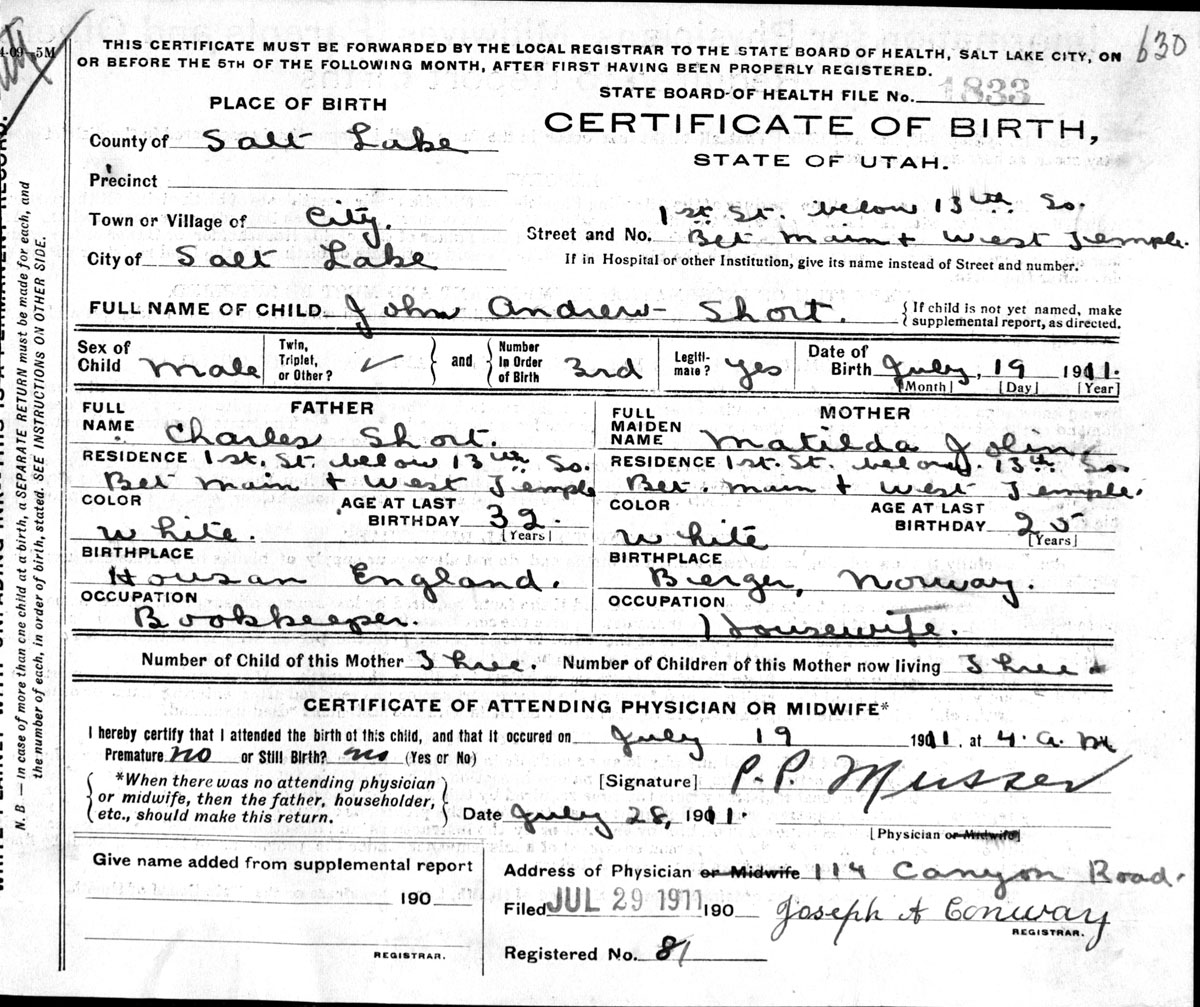 4-09-5M
630
THIS CERTIFICATE MUST BE FORWARDED BY THE LOCAL REGISTRAR TO THE STATE BOARD OF HEALTH, SALT LAKE CITY, ON
OR BEFORE THE 5TH OF THE FOLLOWING MONTH, AFTER FIRST HAVING BEEN PROPERLY REGISTERED.
STATE BOARD OF HEALTH FILE No. 1833
PLACE OF BIRTH
CERTIFICATE OF BIRTH,
STATE OF UTAH.
County of Salt Lake
Precinct
Town or Village of City.
City of Salt Lake
1st. St. below 13th So.
Street and No. Bet Main + West Temple.
If in Hospital or other Institution, give its name instead of Street and number.
FULL NAME OF CHILD John Andrew Short. {If child is not yet named, make
supplemental report, as directed.
Sex of Child Male
Twin, Triplet, or Other? ✓ and Number in Order of Birth 3rd
Legiti-mate? yes
Date of Birth July, 19 1911.
[Month] [Day] [Year]
FATHER
FULL NAME Charles Short.
RESIDENCE 1st. St. below 13th So.
Bet Main + West Temple
COLOR White.
AGE AT LAST BIRTHDAY 32. [Years]
BIRTHPLACE
Housan England.
OCCUPATION
Bookkeeper.
MOTHER
FULL MAIDEN NAME Matilda Jolin
RESIDENCE 1st. St. below. 13th So
Bet. Main + West Temple.
COLOR White
AGE AT LAST BIRTHDAY 25 [Years]
BIRTHPLACE
Berger, Norway.
OCCUPATION
Housewife.
Number of Child of this Mother Three. Number of Children of this Mother now living Three.
CERTIFICATE OF ATTENDING PHYSICIAN OR MIDWIFE*
I hereby certify that I attended the birth of this child, and that it occured on July 19 1911, at 4. a. m
Premature no or Still Birth? no (Yes or No)
*When there was no attending physician
or midwife, then the father, householder,
etc., should make this return.
[Signature] P. P. Musser
Date July 28, 1911.
[Physician or Midwife]
Give name added from supplemental report
190
REGISTRAR.
Address of Physician or Midwife 114 Canyon Road.
Filed JUL 29 1911 190 Joseph A Conway
REGISTRAR.
Registered No. 81
N. B. — In case of more than one child at a birth, a SEPARATE RETURN must be made for each, and
the number of each, in order of birth, stated. SEE INSTRUCTIONS ON OTHER SIDE.